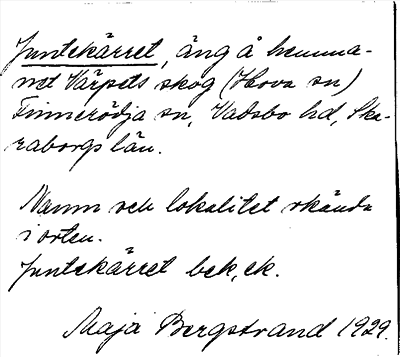 Juntekärret, äng å hemma-
net Värpets skog (Hova sn)
Finnerödja sn, Vadsbo hd, Ska-
raborgs län.
Namn och lokalitet okända
i orten.
Juntekärret bek, ek.
Maja Bergstrand 1929.